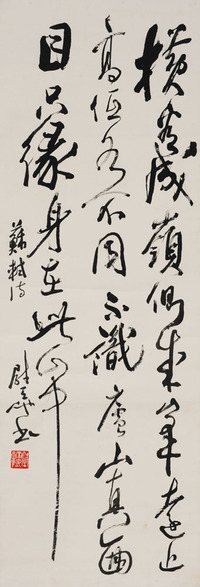 橫看成嶺側成峯遠近
高低各不同不識廬山真面
目只緣身在此山中
蘇軾詩
尉天池书